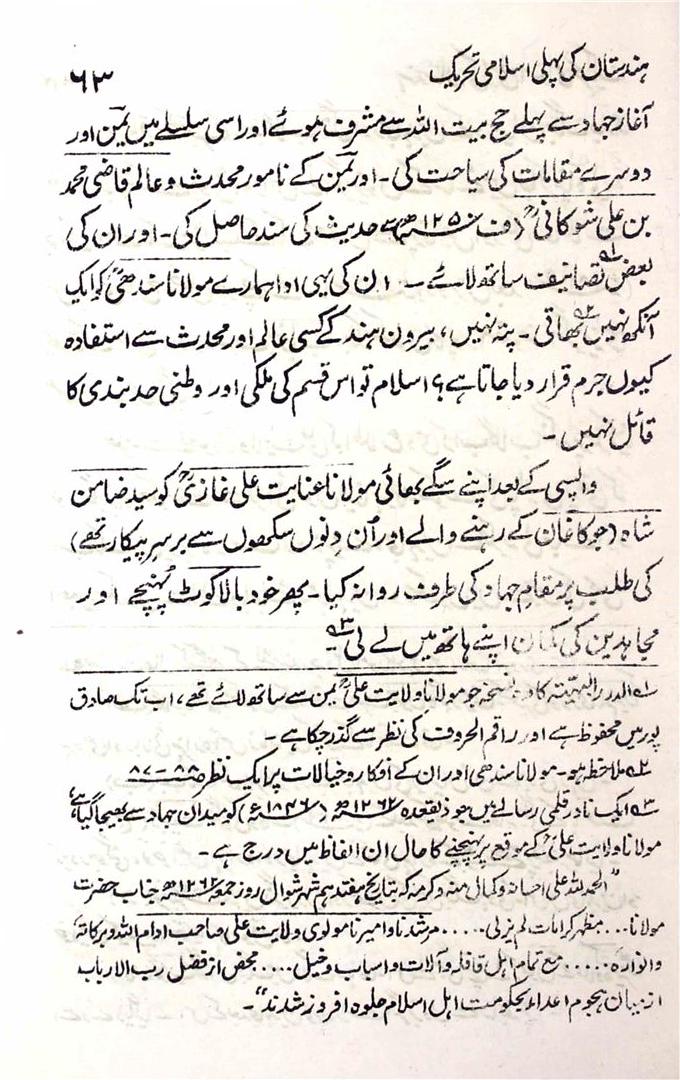 ہندستان کی پہلی اسلامی تحریک
۶۳
آغاز جہاد سے پہلے حج بیت اللہ سے مشرف ہوئے اور اسی سلسلے میں یمن اور
دوسرے مقامات کی سیاحت کی۔ اور یمن کے نامور محدث و عالم قاضی محمد
بن علی شوکانیؒ (ف ۱۲۵۰ھ) سے حدیث کی سند حاصل کی۔ اور ان کی
بعض تصانیف ساتھ لائے ۱؎ ۔ ان کی یہی ادا ہمارے مولانا سندھیؒ کو ایک
آنکھ نہیں بھاتی ۲؎۔ پتہ نہیں، بیرون ہند کے کسی عالم اور محدث سے استفادہ
کیوں جرم قرار دیا جاتا ہے؟ اسلام تو اس قسم کی ملکی اور وطنی حد بندی کا
قائل نہیں۔
واپسی کے بعد اپنے سگے بھائی مولانا عنایت علی غازیؒ کو سید ضامن
شاہ (جو کاغان کے رہنے والے اور اُن دِنوں سکھوں سے برسرِ پیکار تھے)
کی طلب پر مقامِ جہاد کی طرف روانہ کیا۔ پھر خود بالاکوٹ پُہنچے اور
مجاہدین کی کمان اپنے ہاتھ میں لے لی ۳؎۔
۱؎ الدرر البہیتہ کا وہ نسخہ جو مولانا ولایت علیؒ یمن سے ساتھ لائے تھے، اب تک صادق
پور میں محفوظ ہے اور راقم الحروف کی نظر سے گذر چکا ہے۔
۲؎ ملاحظہ ہو۔ مولانا سندھی اور ان کے افکار و خیالات پر ایک نظر ص ۸۸-۸۷
۳؎ ایک نادر قلمی رسالے میں جو ذیقعدہ ۱۲۶۲ھ (۱۸۴۶ء) کو میدان جہاد سے بھیجا گیا ہے،
مولانا ولایت علیؒ کے موقع پر پہنچنے کا حال ان الفاظ میں درج ہے۔
"الحمد للہ علی احسانہ و کمال منہ و کرمہ کہ بتاریخ ہفتدہم شہر شوال روز جمعہ ۱۲۶۲ھ جناب حضرت
مولانا... مظہر کرامات لم یزلی ..... مرشدنا و امیرنا مولوی ولایت علی صاحب ادام اللہ و برکاتہٗ
و انوارہٗ ..... مع تمام اہل قافلہ و آلات و اسباب و خیل .... محض از فضل رب الارباب
از میان ہجوم اعداء بحکومت اہل اسلام جلوہ افروز شدند"۔